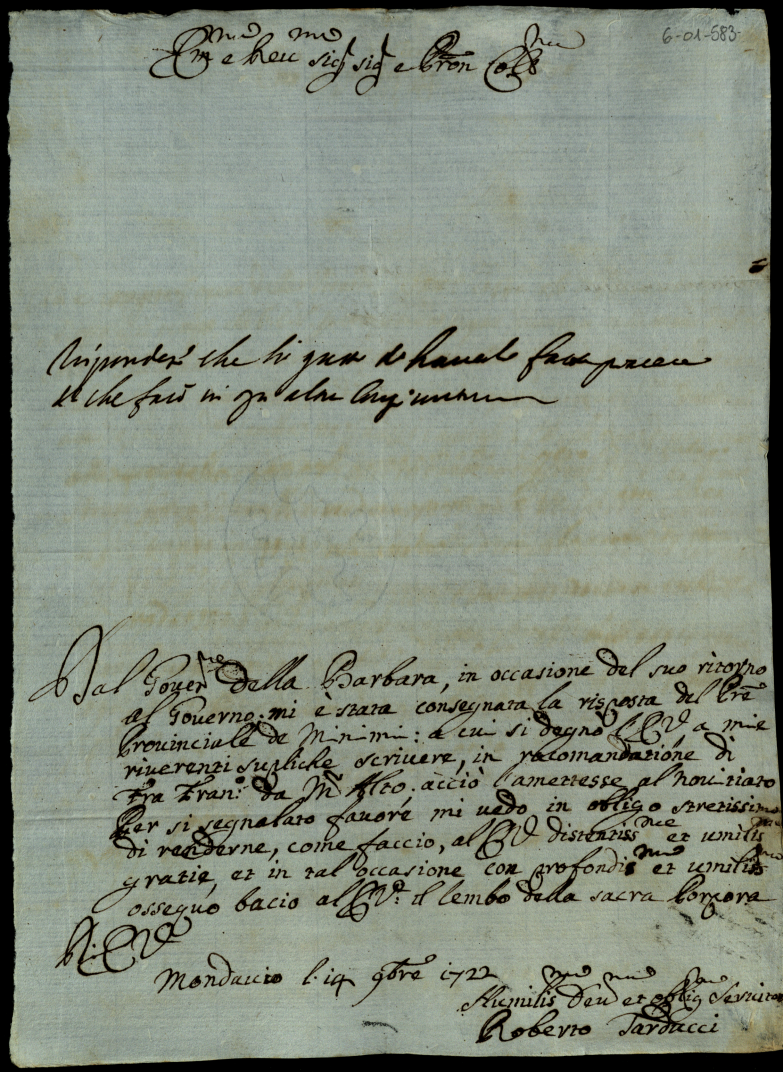 6-01-583
Em.mo e Reu.mo Sig.r Sig.r e Pron Col.mo
che li
che farò in
Dal Gouer.re della Barbara, in occasione del suo ritorno
al Gouerno; mi è stata consegnata la risposta del Pre
Prouinciale de Minimi: a cui si degnò l'E.V. a mie
riuerenti supliche scriuere, in racomandatione di
Fra Fran.o da M. Alto, acciò l'amettesse al Nouitiato
Per si segnalato fauore mi uedo in obligo stretissimo
di renderne, come faccio, al E.V. distintiss.me et umilis.me
gratie, et in tal occasione con profondis.mo et umilis.mo
ossequo bacio al E.V. il lembo della sacra Porpora
Di E.V.
Mondauio li 14 9bre 1722
Humilis.mo Deu.mo et oblig.mo Seruitor
Roberto Tarducci